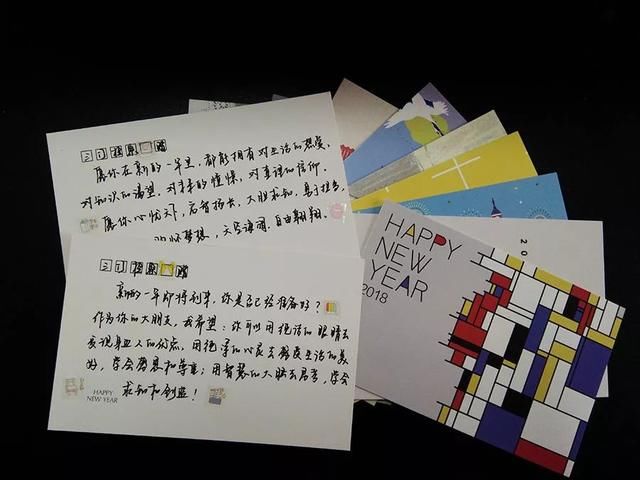 三丁
愿你在新的一年里,都能拥有对生活的热爱、
对知识的渴望、对未来的憧憬、对真理的信仰。
愿你心忧天下,扬长,大胆求知,勇于担当,
心怀梦想,天高海阔,自由翱翔。
三丁
新的一年即将到来,你是否已经准备好?
作为你的大朋友,我希望:你可以用的眼睛去
发现身边人的优点,用纯净的心灵去感受生活的美
好,学会和尊重;用智慧的大脑去思考,学会
求知和创造!
HAPPY
NEW YEAR
HAPPY
NEW
YEAR
2018
20